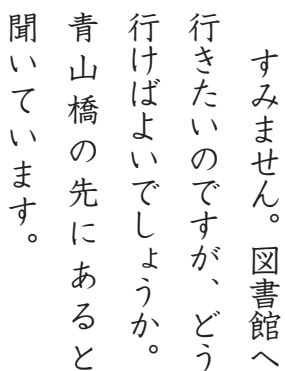 すみません。図書館へ
行きたいのですが、どう
行けばよいでしょうか。
青山橋の先にあると
聞いています。